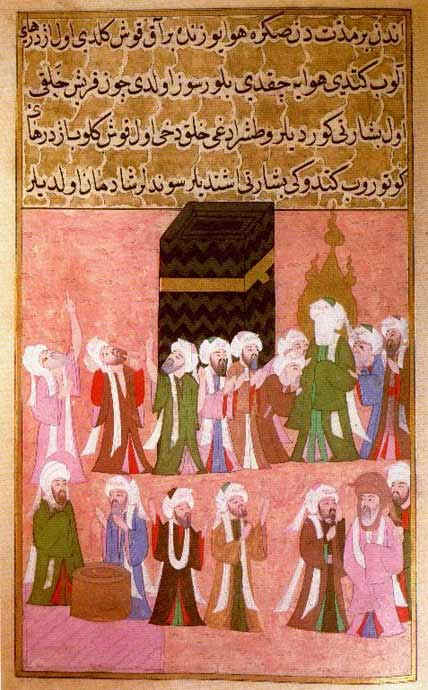 اندن بر مدت دن صکره هوا یوزندە بر آق قوش کلدی اول اژدرهای
آلوب کتدی هوایه چقدی بلورسوز اولدی چون قریش خلقی
اول بشارتی کوردیلر و طغرادغی خلق دخی اول قوش کلوب اژدرهای
کوتوروب کتدوکی بشارتی اشتدیلر سوندیلر شادمان اولدیلر